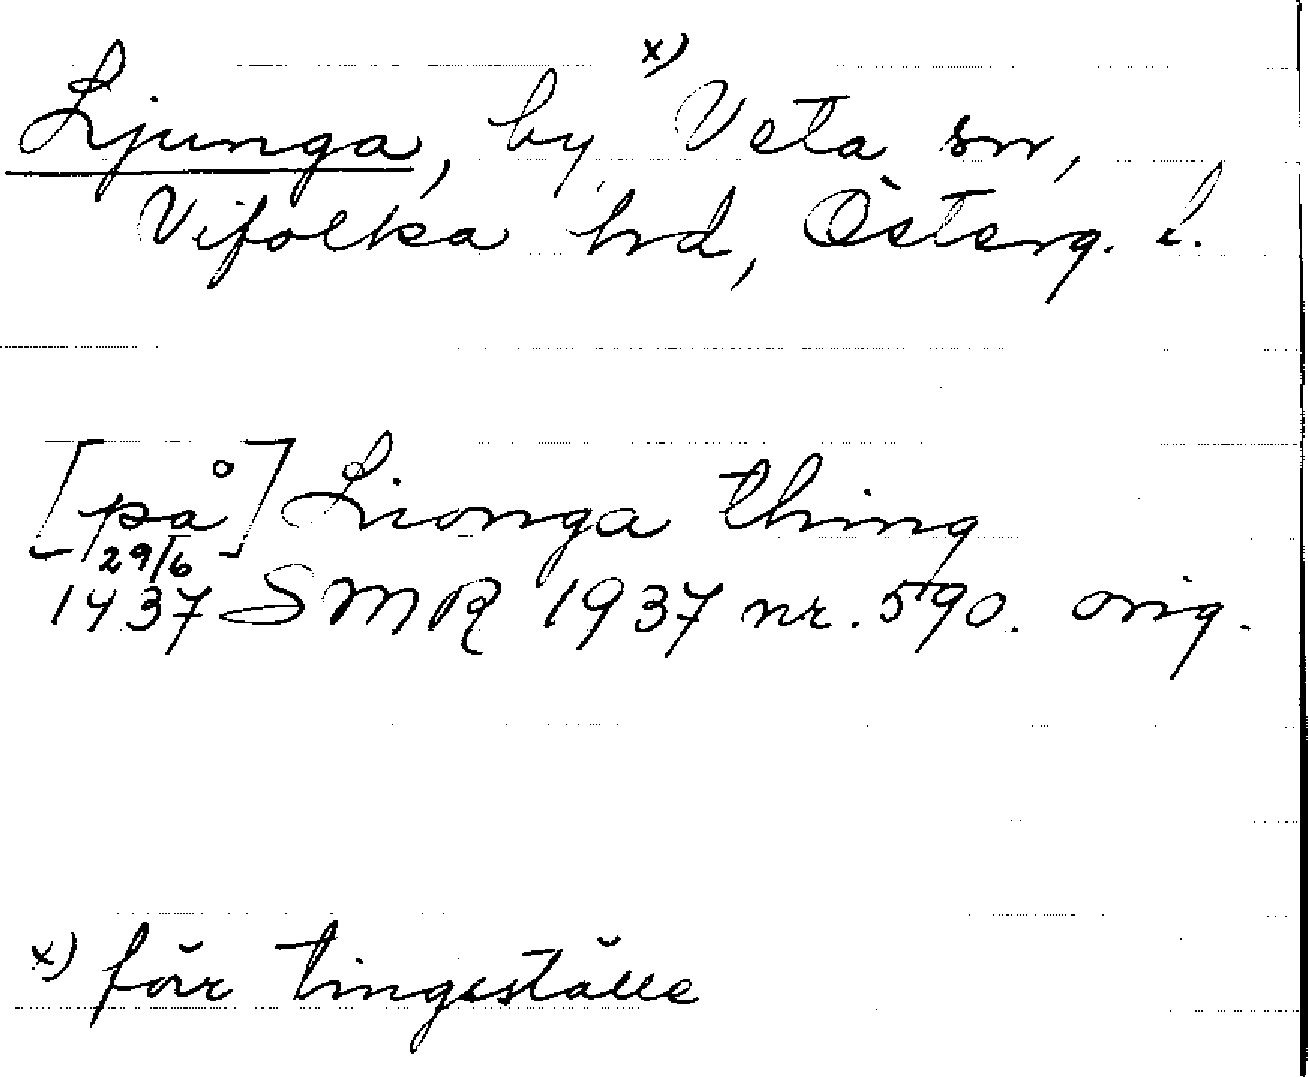 Ljunga, by x) Veta sn,
Vifolka hd, Österg. l.
[på] Lionga thing
29/6
1437 SMR 1937 nr. 590. orig.
x) förr tingsställe